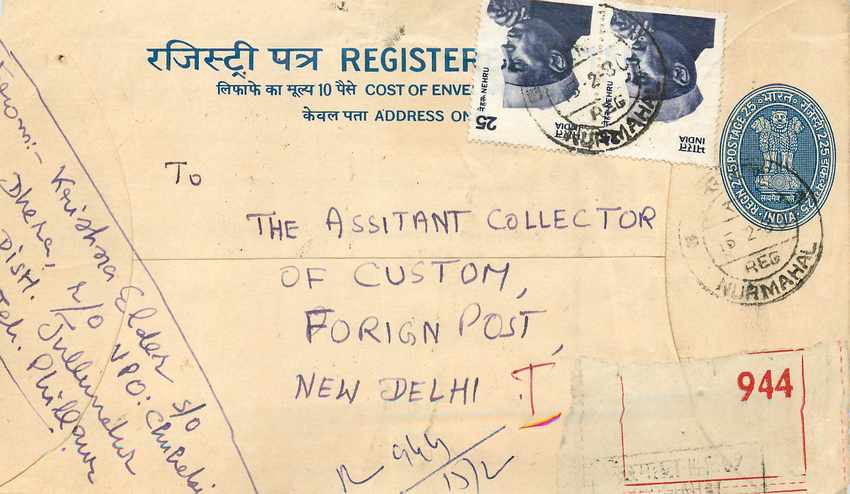 रजिस्ट्री पत्र REGISTER
लिफाफे का मूल्य 10 पैसे COST OF ENVE
केवल पता ADDRESS ON
25
नेहरू NEHRU
नेहरू NEHRU
भारत
INDIA
REG
NURMAHAL
भारत
REGN 2/25 POSTAGE 25
INDIA
REG
NURMAHAL
From:- Krishna Elder s/o
Dhera, r/o VPO:
Distt. Jullundur
Teh. Phillaur
To
THE ASSITANT COLLECTOR
OF CUSTOM,
FORIGN POST,
NEW DELHI T
R 944
13/2
944